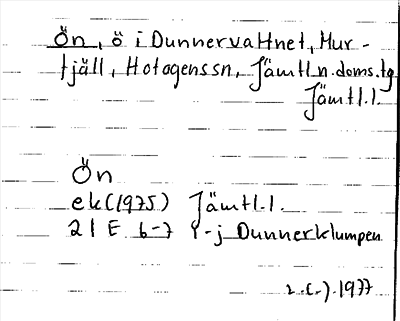 Ön, ö i Dunnervattnet, Mur-
fjäll, Hotagens sn, Jämtl n. doms.tg
Jämtl.l.
Ön
ek (1975) Jämtl.l.
21 E 6-7 i-j Dunnerklumpen
1977